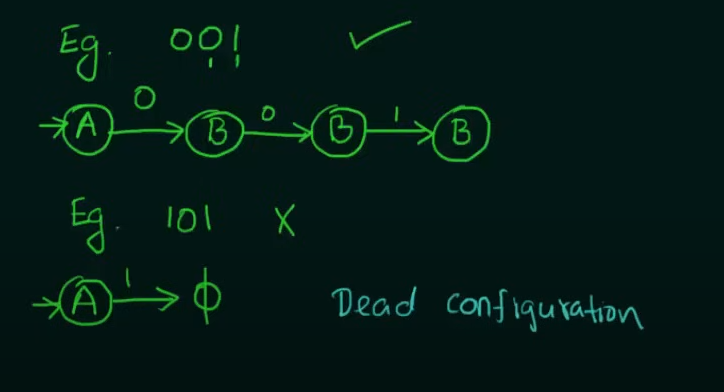 Eg. 001 ✓
0 0 1
A B B B
Eg. 101 X
1
A ϕ Dead configuration